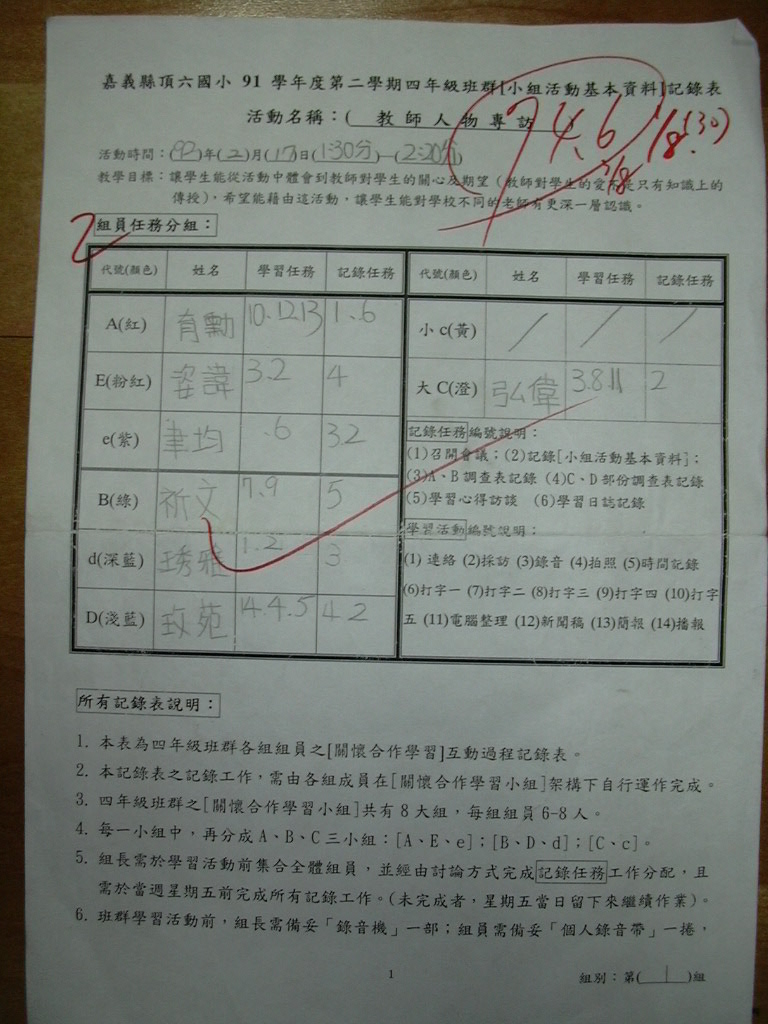 嘉義縣頂六國小 91 學年度第二學期四年級班群[小組活動基本資料]記錄表
活動名稱：( 教師人物專訪 )
74.6
1/8 (30)
活動時間：(92)年(2)月(17)日(1:30分)—(2:20分)
教學目標：讓學生能從活動中體會到教師對學生的關心及期望（教師對學生的愛不是只有知識上的
傳授），希望能藉由這活動，讓學生能對學校不同的老師有更深一層認識。
2
組員任務分組：
代號(顏色) 姓名 學習任務 記錄任務
A(紅) 育勳 10.12.13 1、6
E(粉紅) 姿諱 3.2 4
e(紫) 聿均 .6 3.2
B(綠) 祈文 7.9 5
d(深藍) 琇雅 1.2 3
D(淺藍) 玫苑 14.4.5 4 2
代號(顏色) 姓名 學習任務 記錄任務
小 c(黃) / / /
大 C(澄) 弘偉 3.8.11 2
記錄任務編號說明：
(1)召開會議；(2)記錄[小組活動基本資料]；
(3)A、B 調查表記錄 (4)C、D 部份調查表記錄
(5)學習心得訪談 (6)學習日誌記錄
學習活動編號說明：
(1) 連絡 (2)採訪 (3)錄音 (4)拍照 (5)時間記錄
(6)打字一 (7)打字二 (8)打字三 (9)打字四 (10)打字
五 (11)電腦整理 (12)新聞稿 (13)簡報 (14)播報
所有記錄表說明：
1. 本表為四年級班群各組組員之[關懷合作學習]互動過程記錄表。
2. 本記錄表之記錄工作，需由各組成員在[關懷合作學習小組]架構下自行運作完成。
3. 四年級班群之[關懷合作學習小組]共有 8 大組，每組組員 6-8 人。
4. 每一小組中，再分成 A、B、C 三小組：[A、E、e]；[B、D、d]；[C、c]。
5. 組長需於學習活動前集合全體組員，並經由討論方式完成記錄任務工作分配，且
需於當週星期五前完成所有記錄工作。(未完成者，星期五當日留下來繼續作業)。
6. 班群學習活動前，組長需備妥「錄音機」一部；組員需備妥「個人錄音帶」一捲，
1
組別：第( 1 )組